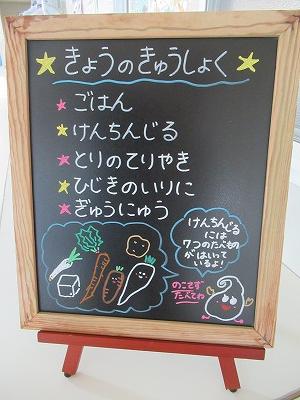 きょうのきゅうしょく
ごはん
けんちんじる
とりのてりやき
ひじきのいりに
ぎゅうにゅう
けんちんじる
には
7つのたべもの
がはいって
いるよ!
のこさず
たべてね